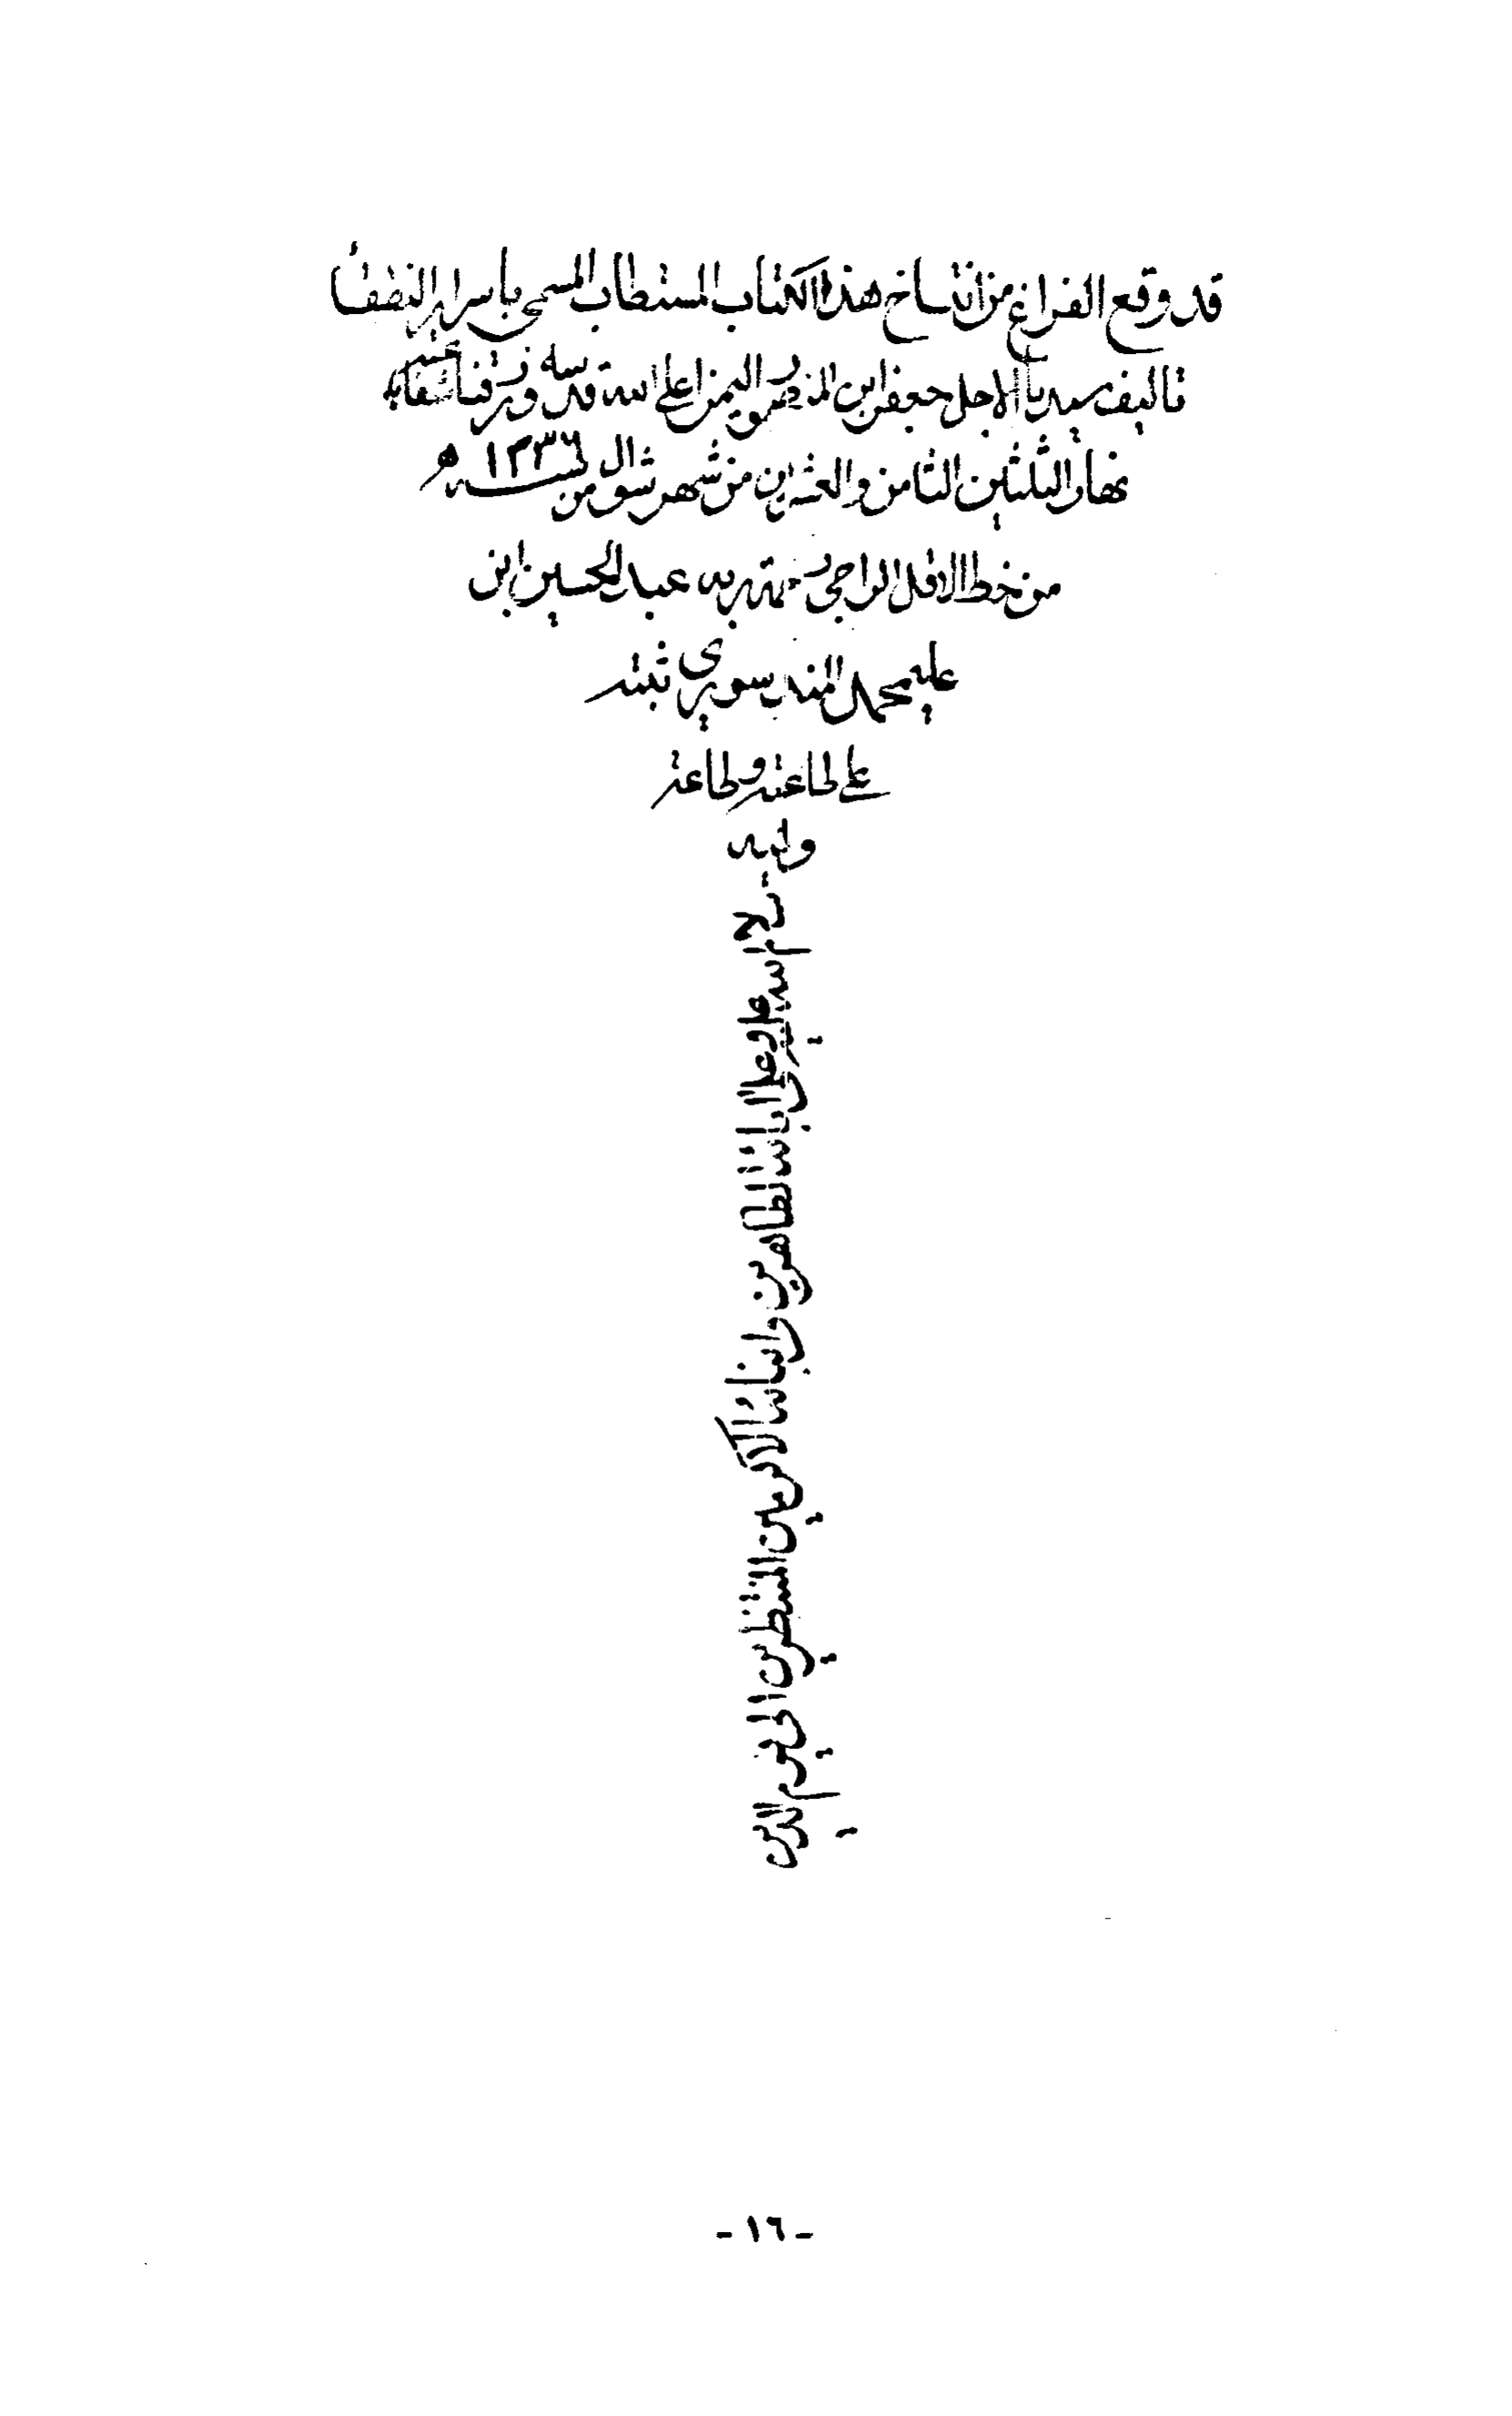 قد وقع الفراغ من انتساخ هذا الكتاب المستطاب المسمى باسرار النطقاء
تاليف سيدنا الاجل جعفر ابن المنصور اليمن اعلى الله قدسه ورزقنا شفاعته
نهار الثلثين الثامن والعشرين من شهر شوال من سنه ١٣٣٦ ه
من خط الاقل الراجي رحمة ربه عبد الحسين ابن
عليمحمد المندسوري ثبته
على طاعته وطاعة
وليه
سلام الله عليه وعلى ابائه الطاهرين وابنائه الاكرمين المنتظرين الى يوم الدين
- ١٦ -